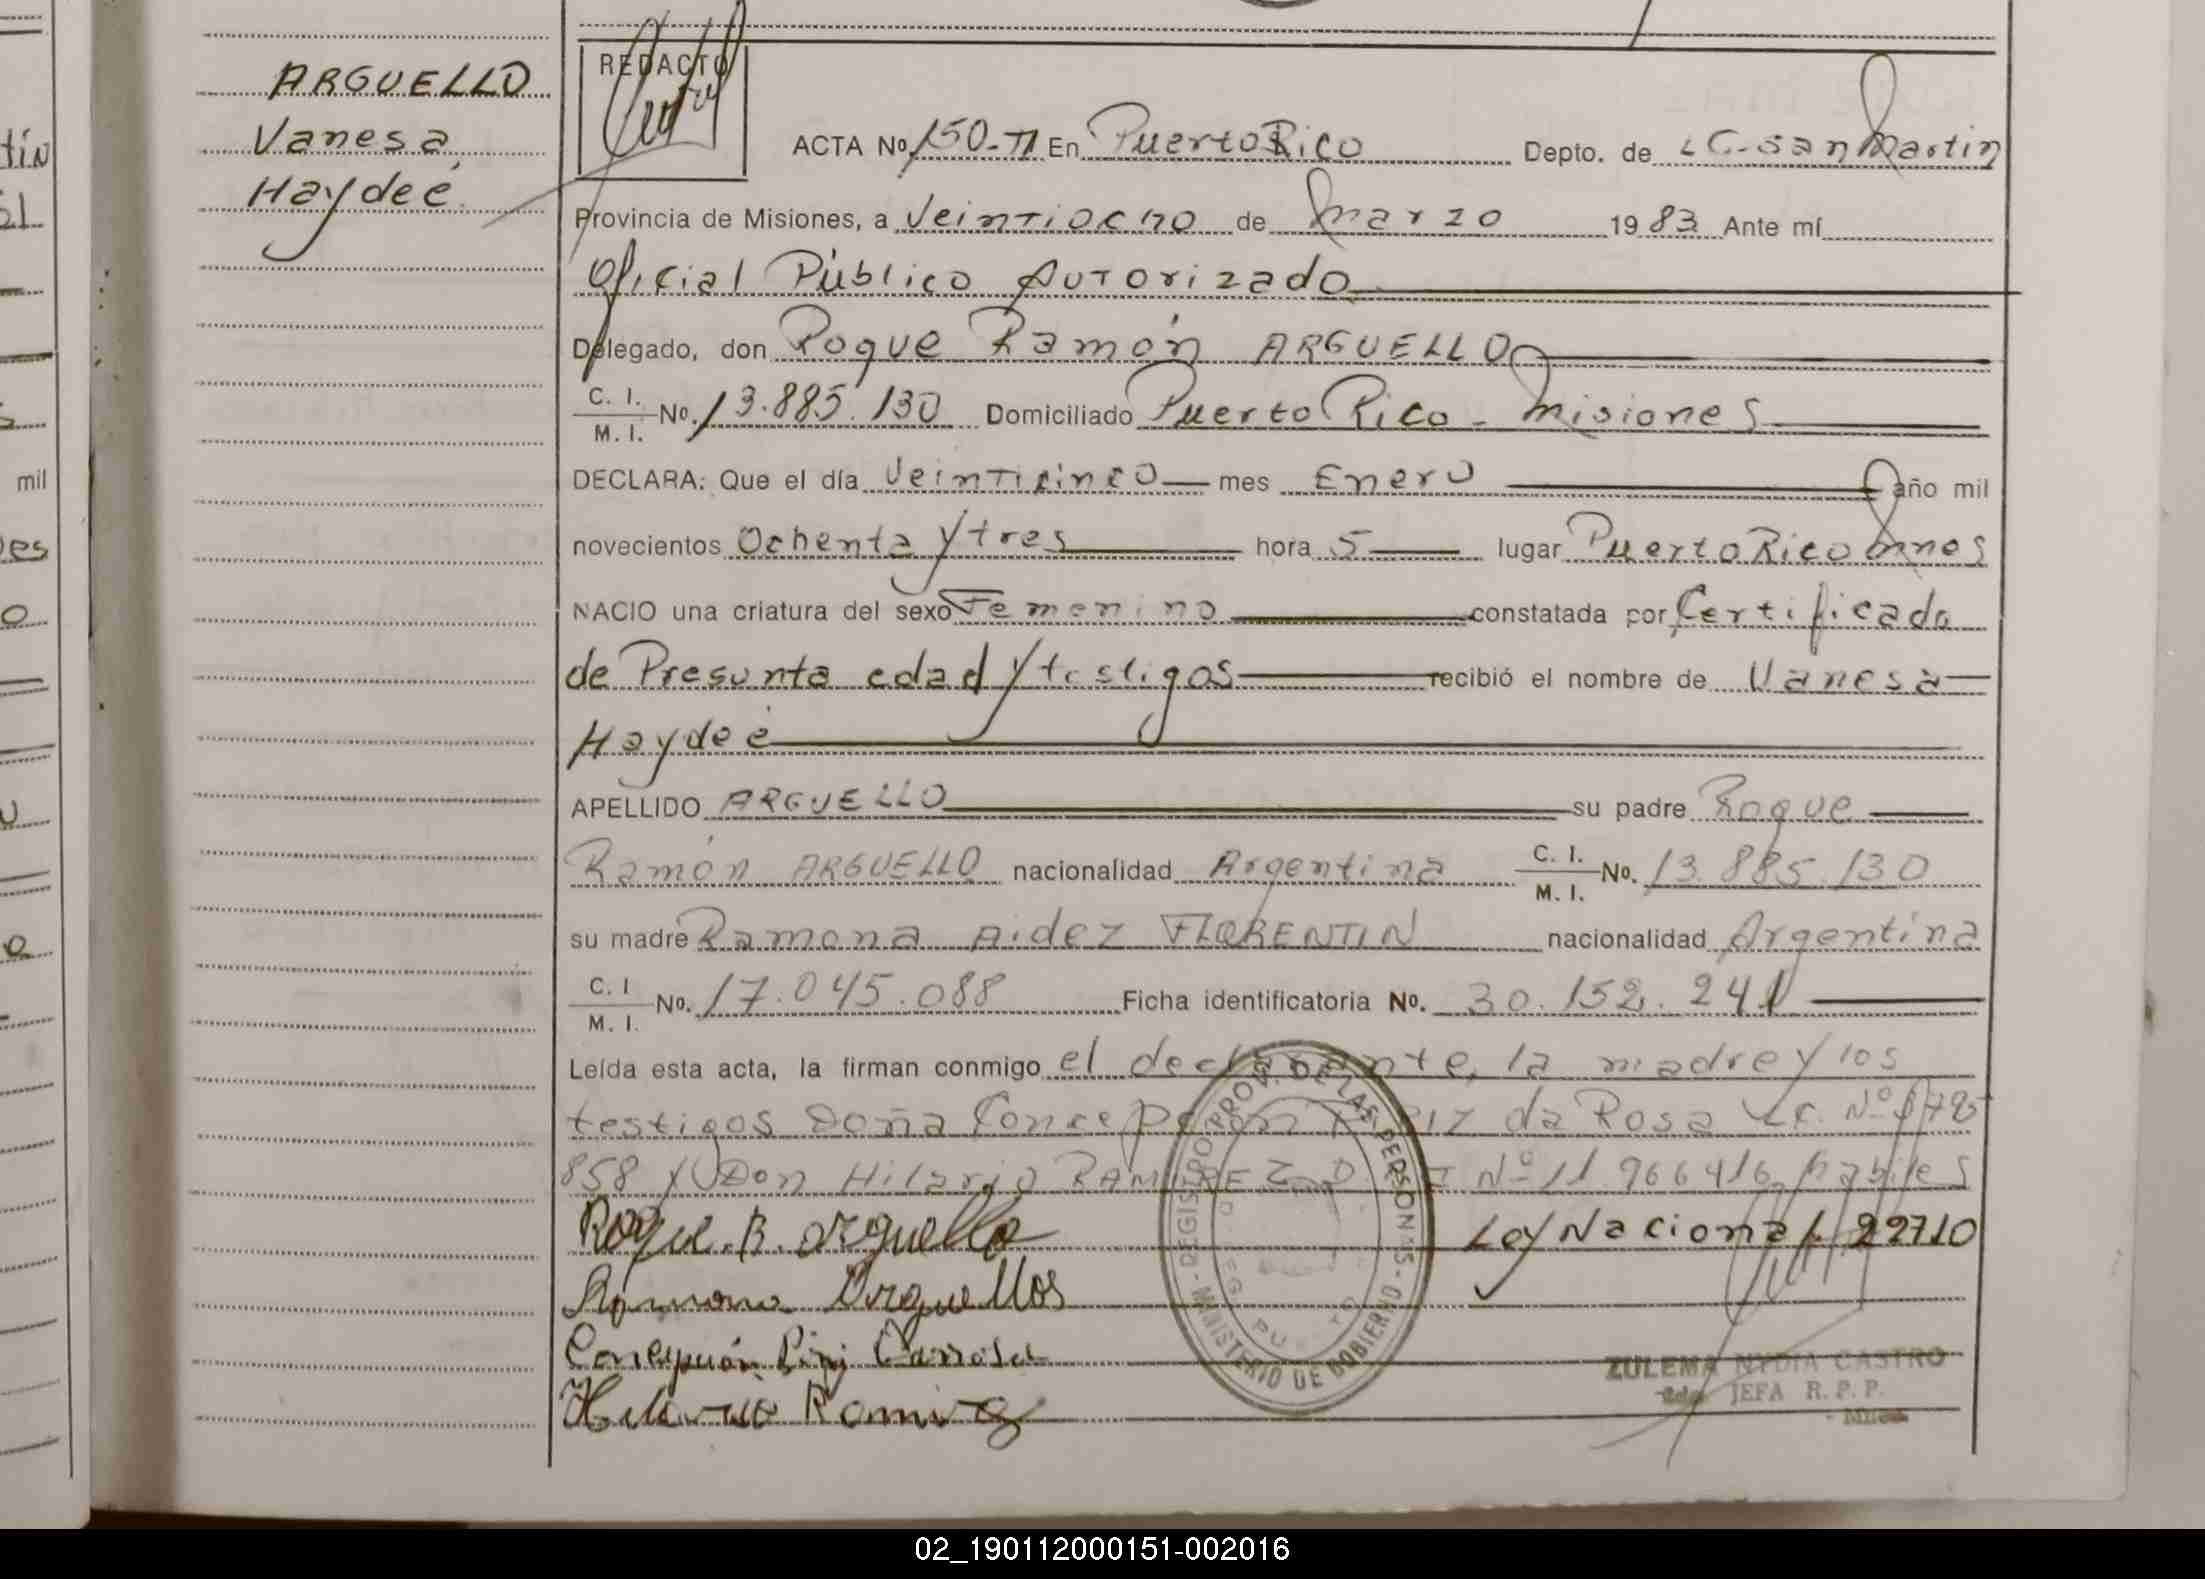 ARGUELLO
Vanesa
Haydeé
REDACTO
ACTA No. 150-TI En Puerto Rico Depto. de L G. San Martin
Provincia de Misiones, a Veintiocho de marzo 1983 Ante mí
Oficial Público Autorizado
Delegado, don Roque Ramón ARGUELLO
C. I.
M. I. No. 13.885.130 Domiciliado Puerto Rico - Misiones
DECLARA: Que el día Veinticinco mes Enero año mil
novecientos Ochenta y tres hora 5 lugar Puerto Rico Mnes
NACIO una criatura del sexo Femenino constatada por Certificado
de Presunta edad y testigos recibió el nombre de Vanesa
Haydeé
APELLIDO ARGUELLO su padre Roque
Ramón ARGUELLO nacionalidad Argentina C. I.
M. I. No. 13.885.130
su madre Ramona Aidez FLORENTIN nacionalidad Argentina
C. I
M. I. No. 17.045.088 Ficha identificatoria No. 30.152.241
Leída esta acta, la firman conmigo el declarante, la madre y los
testigos Doña Concepción da Rosa Nº
858 y Don Hilario RAMIREZ D I Nº 11.966416 habiles
Roque. R. arguello Ley Nacional 22710
Ramona Arguellos
Concepción Carrosa
Hilario Ramirez
REGISTRO PROV. DE LAS PERSONAS - MINISTERIO DE GOBIERNO -
ZULEMA NYDIA CASTRO
JEFA R. P. P.
tín
mil
es
02_190112000151-002016